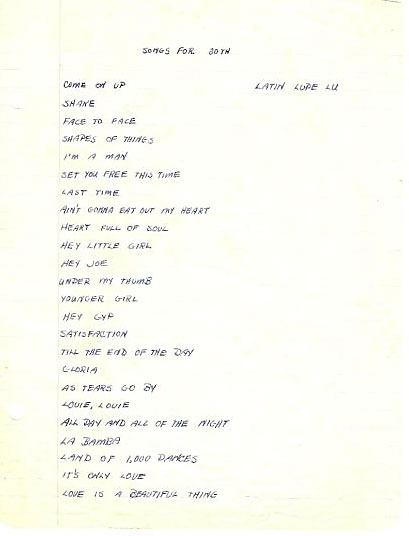 SONGS FOR 30TH
COME ON UP
LATIN LUPE LU
SHAKE
FACE TO FACE
SHAPES OF THINGS
I'M A MAN
SET YOU FREE THIS TIME
LAST TIME
AIN'T GONNA EAT OUT MY HEART
HEART FULL OF SOUL
HEY LITTLE GIRL
HEY JOE
UNDER MY THUMB
YOUNGER GIRL
HEY GYP
SATISFACTION
TILL THE END OF THE DAY
GLORIA
AS TEARS GO BY
LOUIE, LOUIE
ALL DAY AND ALL OF THE NIGHT
LA BAMBA
LAND OF 1,000 DANCES
IT'S ONLY LOVE
LOVE IS A BEAUTIFUL THING